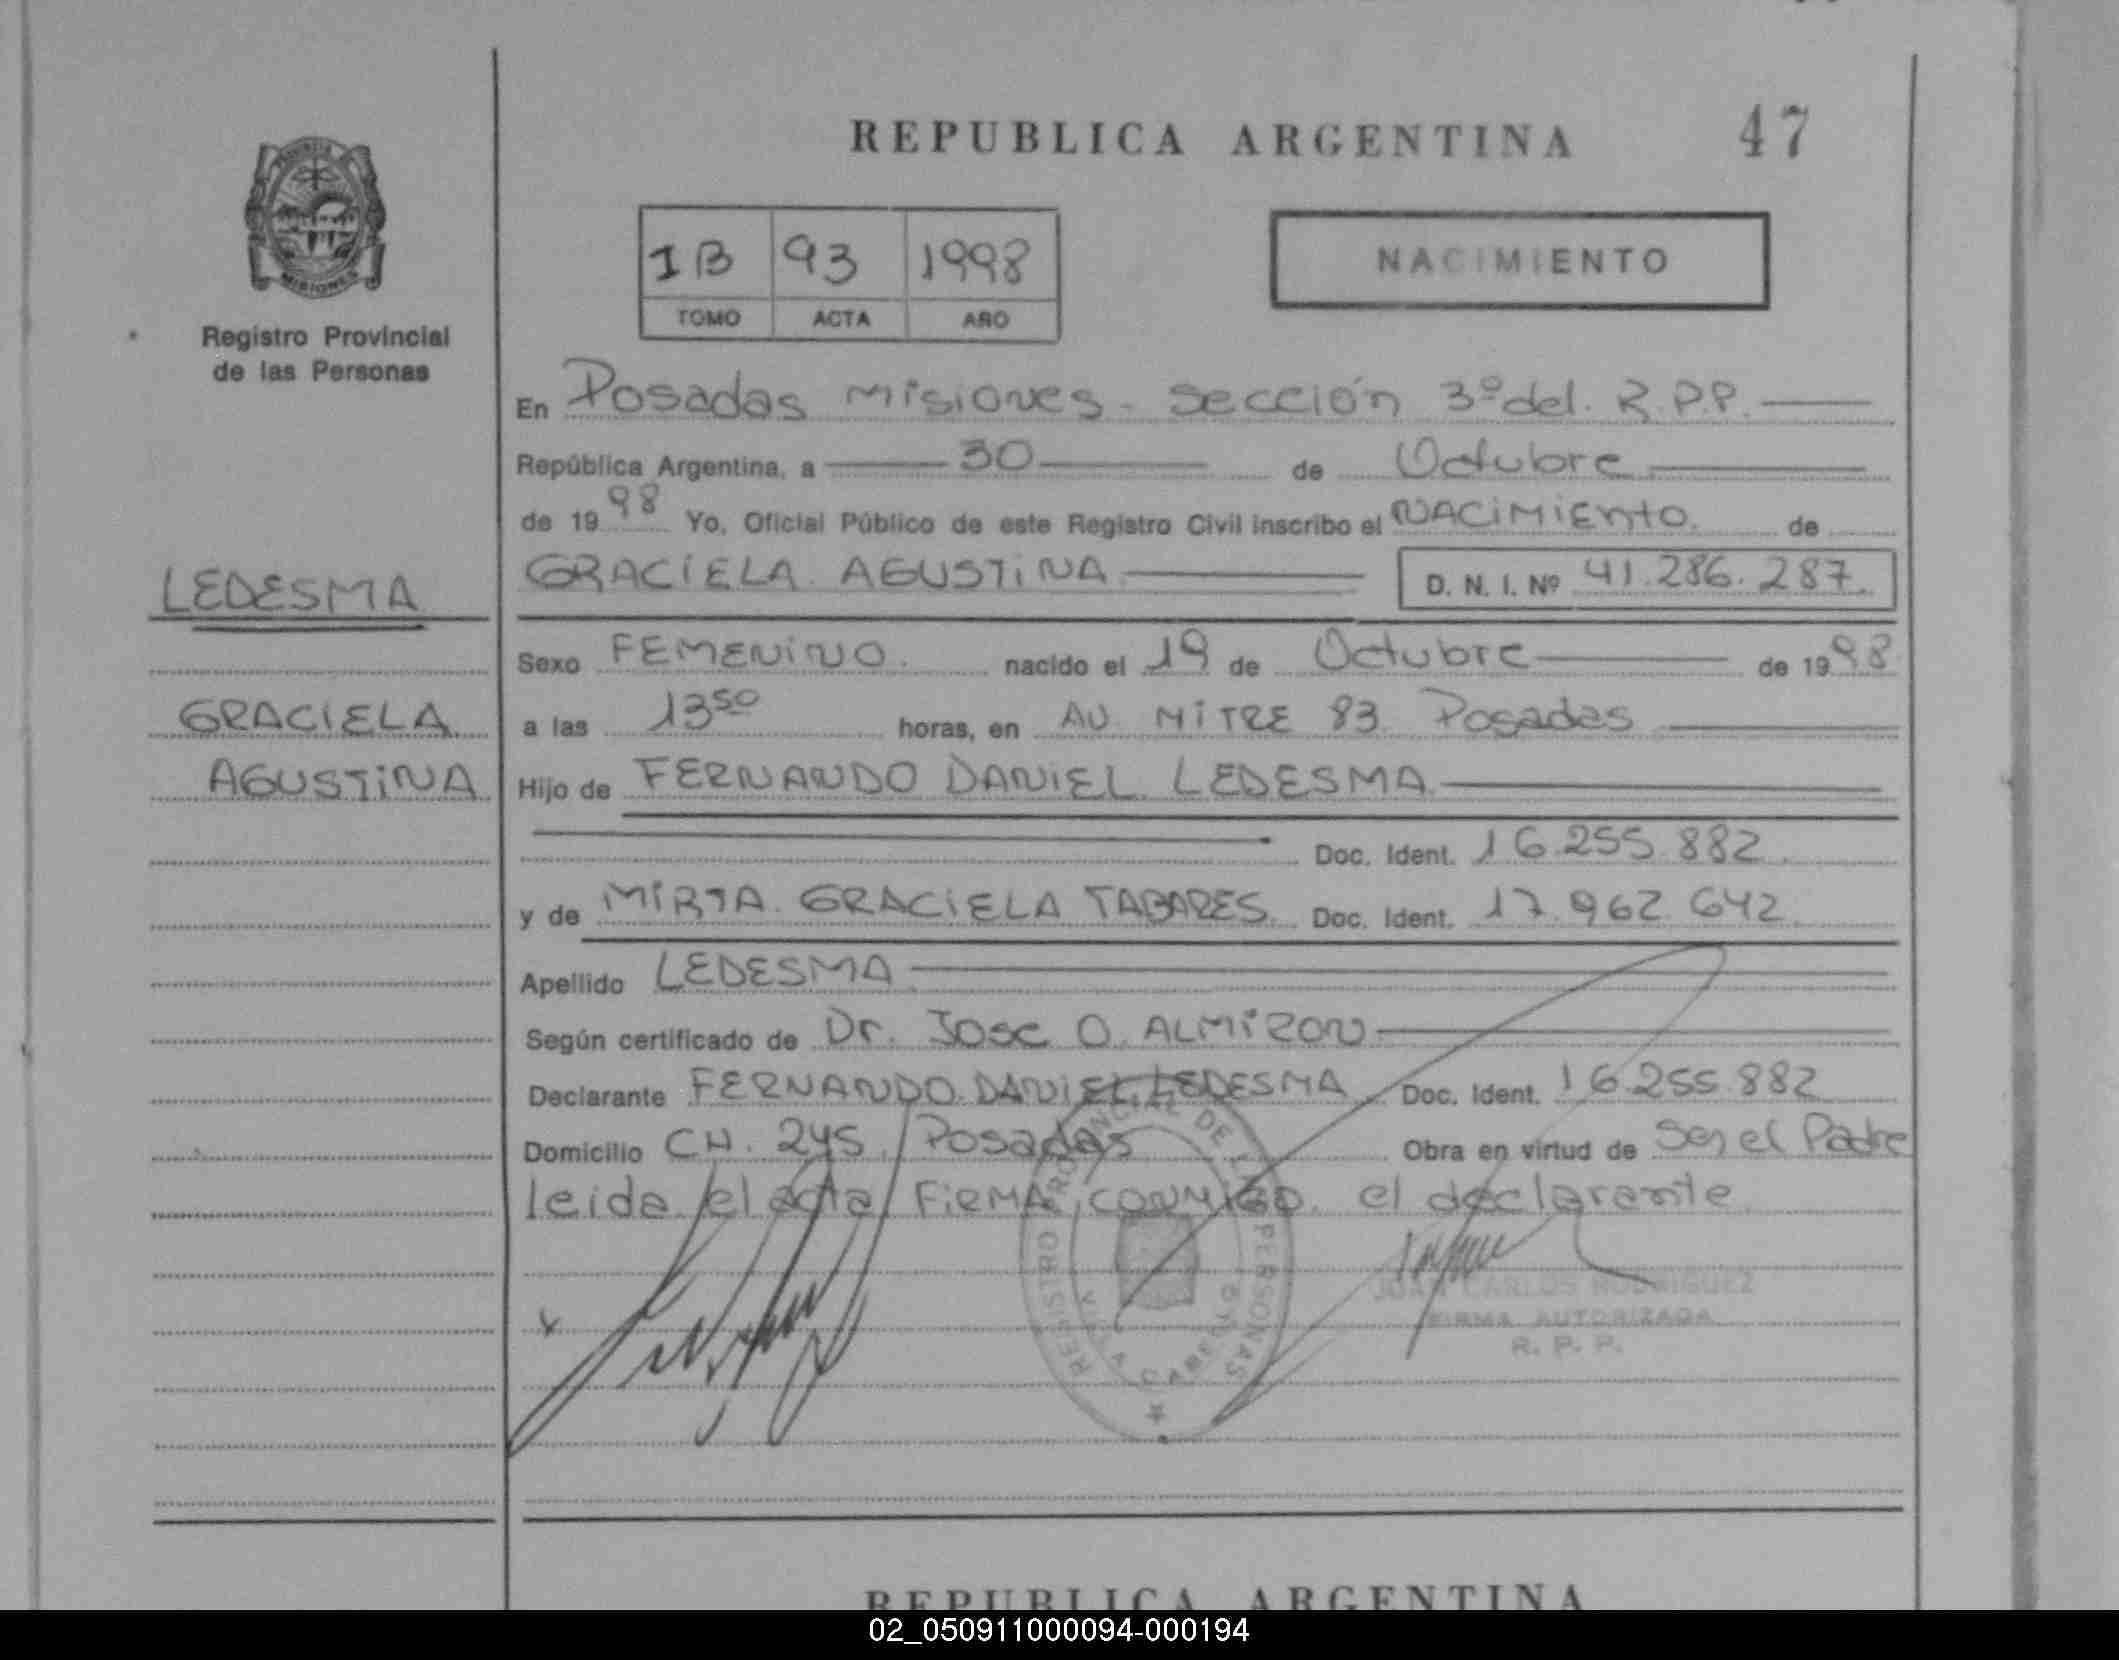 REPUBLICA ARGENTINA 47
PROVINCIA
MISIONES
Registro Provincial
de las Personas
1B 93 1998
TOMO ACTA AÑO
NACIMIENTO
En Posadas Misiones - Sección 3º del. R.P.P.
República Argentina, a 30 de Octubre
de 1998 Yo, Oficial Público de este Registro Civil inscribo el NACIMIENTO. de
GRACIELA AGUSTINA D. N. I. Nº 41.286.287.
LEDESMA
GRACIELA
AGUSTINA
Sexo FEMENINO. nacido el 19 de Octubre de 1998
a las 13 50 horas, en AV. MITRE 83 Posadas
Hijo de FERNANDO DANIEL LEDESMA
Doc. Ident. 16.255.882.
y de MIRTA GRACIELA TABARES. Doc. Ident. 17.962.642.
Apellido LEDESMA
Según certificado de Dr. Jose O. ALMIRON
Declarante FERNANDO DANIEL LEDESMA Doc. Ident. 16.255.882
Domicilio CH. 245, Posadas Obra en virtud de Ser el Padre
leida el acta FIRMA CONMIGO el declarante
REGISTRO PROVINCIAL DE LAS PERSONAS
VILLA CABELLO
JUAN CARLOS RODRIGUEZ
FIRMA AUTORIZADA
R. P. P.
REPUBLICA ARGENTINA
02_050911000094-000194